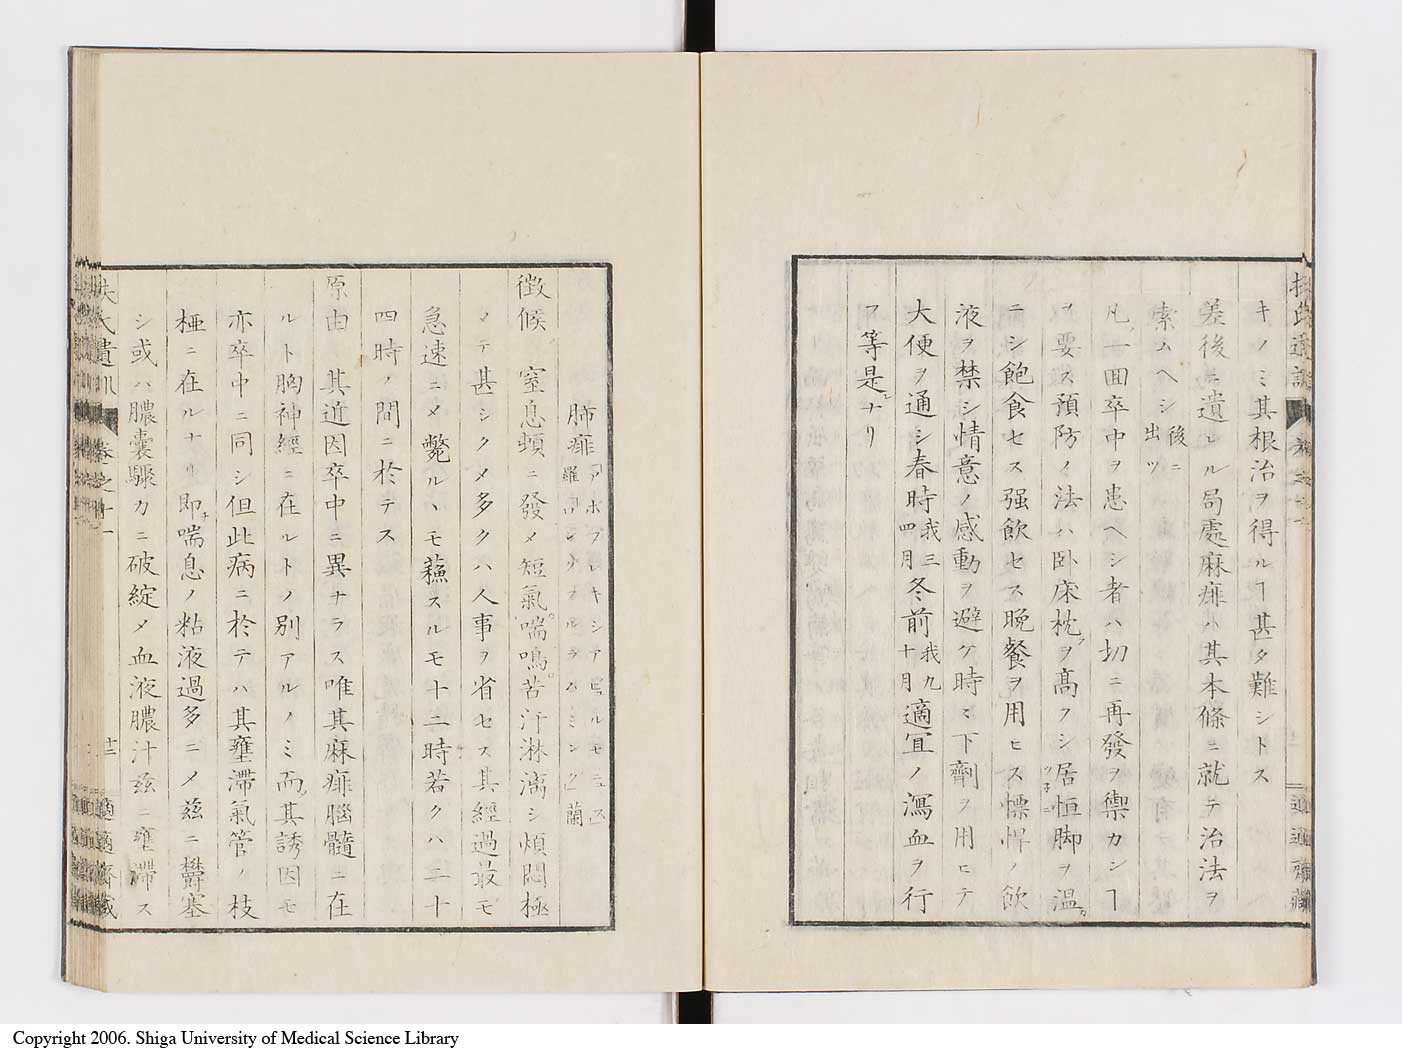 キノミ其根治ヲ得ルヿ甚タ難シトス
差後ニ遺レル局處麻痺ハ其本條ニ就テ治法ヲ
索ムヘシ後ニ出ツ
凡一回卒中ヲ患ヘシ者ハ切ニ再發ヲ禦カンヿ
ヲ要ス預防ノ法ハ卧床枕ヲ高フシ居恒脚ヲ温
ニシ飽食セス强飲セス晩餐ヲ用ヒス慓悍ノ飲
液ヲ禁シ情意ノ感動ヲ避ケ時々下劑ヲ用ヒテ
大便ヲ通シ春時我三四月冬前我九十月適宜ノ瀉血ヲ行
フ等是ナリ
扶氏遺訓
卷之十一
廿二
適適齋藏
肺痺
徴候 窒息頓ニ發メ短氣喘鳴苦汗淋漓シ煩悶極
メテ甚シクメ多クハ人事ヲ省セス其經過最モ
急速ニメ斃ルヽモ蘓スルモ十二時若クハ二十
四時ノ間ニ於テス
原由 其近因卒中ニ異ナラス唯其麻痺腦髓ニ在
ルト胸神經ニ在ルトノ別アルノミ而其誘因モ
亦卒中ニ同シ但此病ニ於テハ其壅滯氣管ノ枝
極ニ在ルナリ即喘息ノ粘液過多ニメ茲ニ欝塞
シ或ハ膿囊驟カニ破綻メ血液膿汁茲ニ壅滯ス